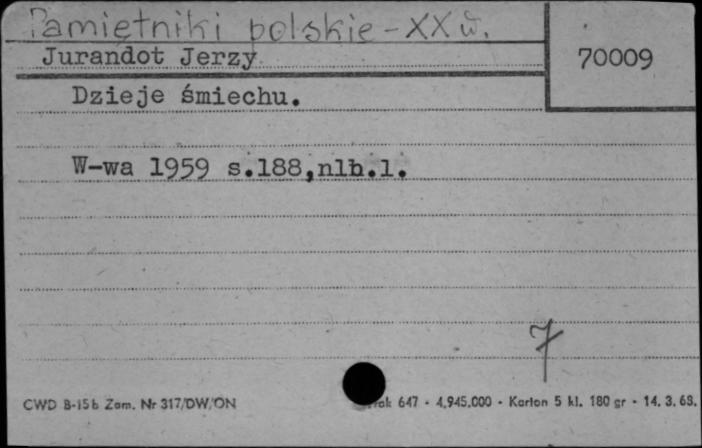 Pamiętniki polskie - XX w.
Jurandot Jerzy
70009
Dzieje śmiechu.
W-wa 1959 s.188,nlb.1.
7
CWD B-15b Zam. Nr 317/DW/ON
647 - 4.945.000 - Karton 5 kl. 180 gr - 14. 3. 63.